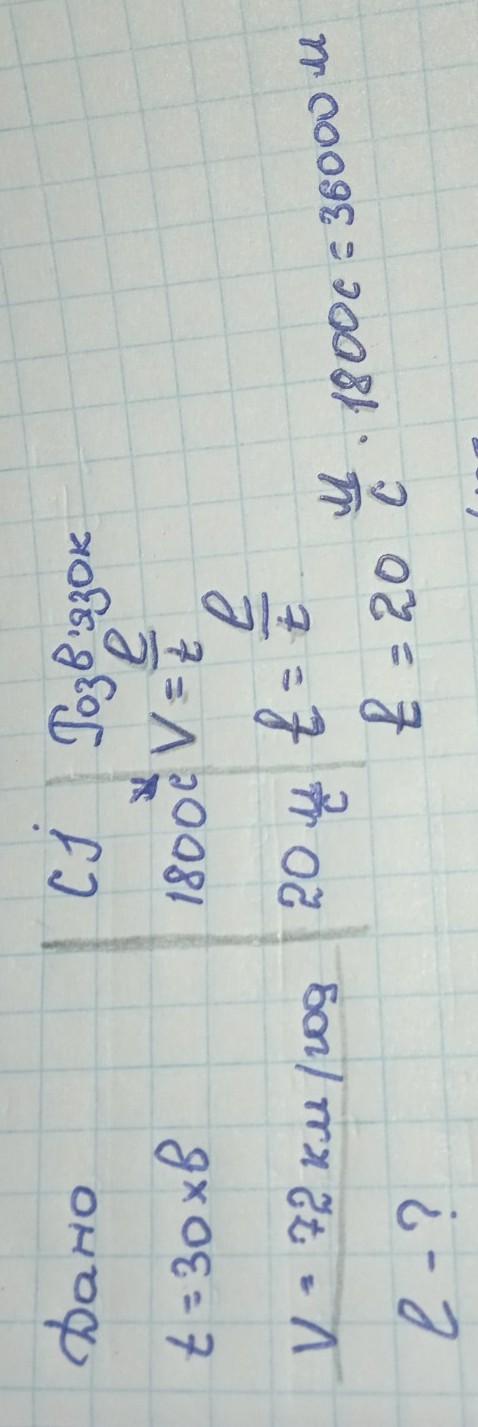 Дано
t = 30 хв
V = 72 км/год
l - ?
СІ
1800 с
20 м/с
Розв'язок
V = l/t
l = l/t
l = 20 м/с · 1800с = 36000 м